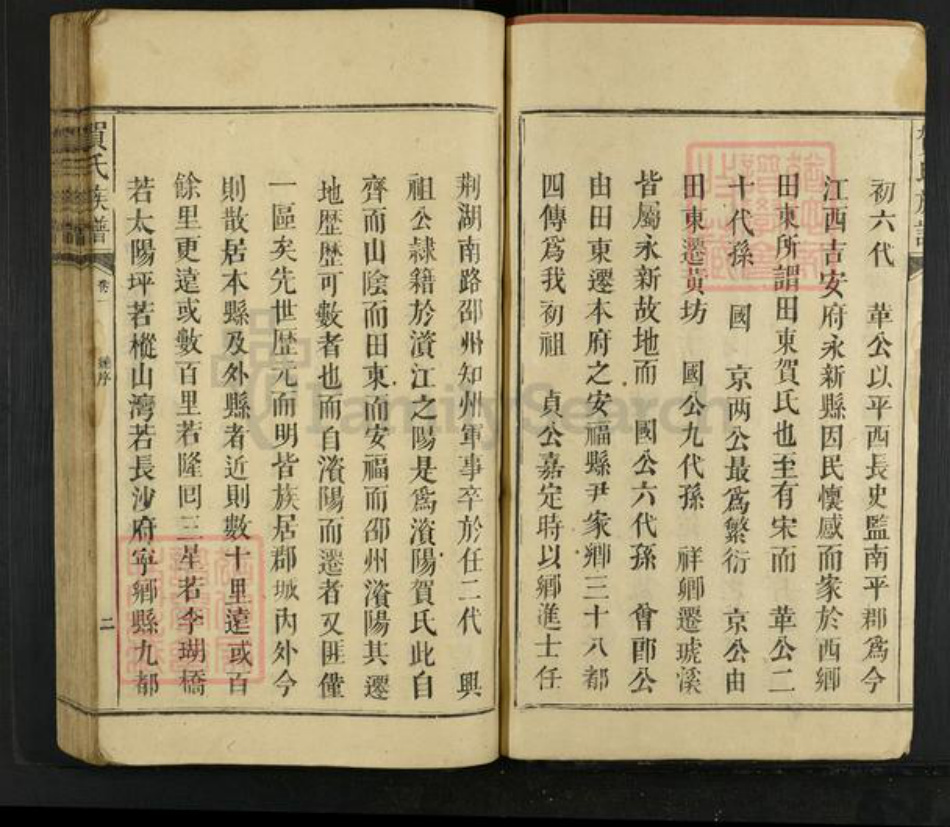 初六代　華公以平西長史監南平郡爲今
江西吉安府永新縣因民懷感而家於西鄉
田東所謂田東賀氏也至有宋而　華公二
十代孫　國　京两公最爲繁衍　京公由
田東遷黄坊　國公九代孫　祥卿遷琥溪
皆屬永新故地而　國公六代孫　曾郎公
由田東遷本府之安福縣尹家鄉三十八都
四傳爲我初祖　貞公嘉定時以鄉進士任
荆湖南路邵州知州軍事卒於任二代　興
祖公隷籍於濱江之陽是爲濱陽賀氏此自
齊而山陰而田東而安福而邵州濱陽其遷
地歷歷可數者也而自濱陽而遷者又匪僅
一區矣先世歷元而明皆族居郡城内外今
則散居本縣及外縣者近則數十里遠或百
餘里更遠或數百里若隆囘三星若李瑚橋
若太陽坪若樅山灣若長沙府寧鄉縣九都
賀氏族譜
卷一
序
二
FamilySearch